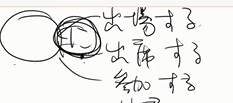 出場する
出席する
参加する